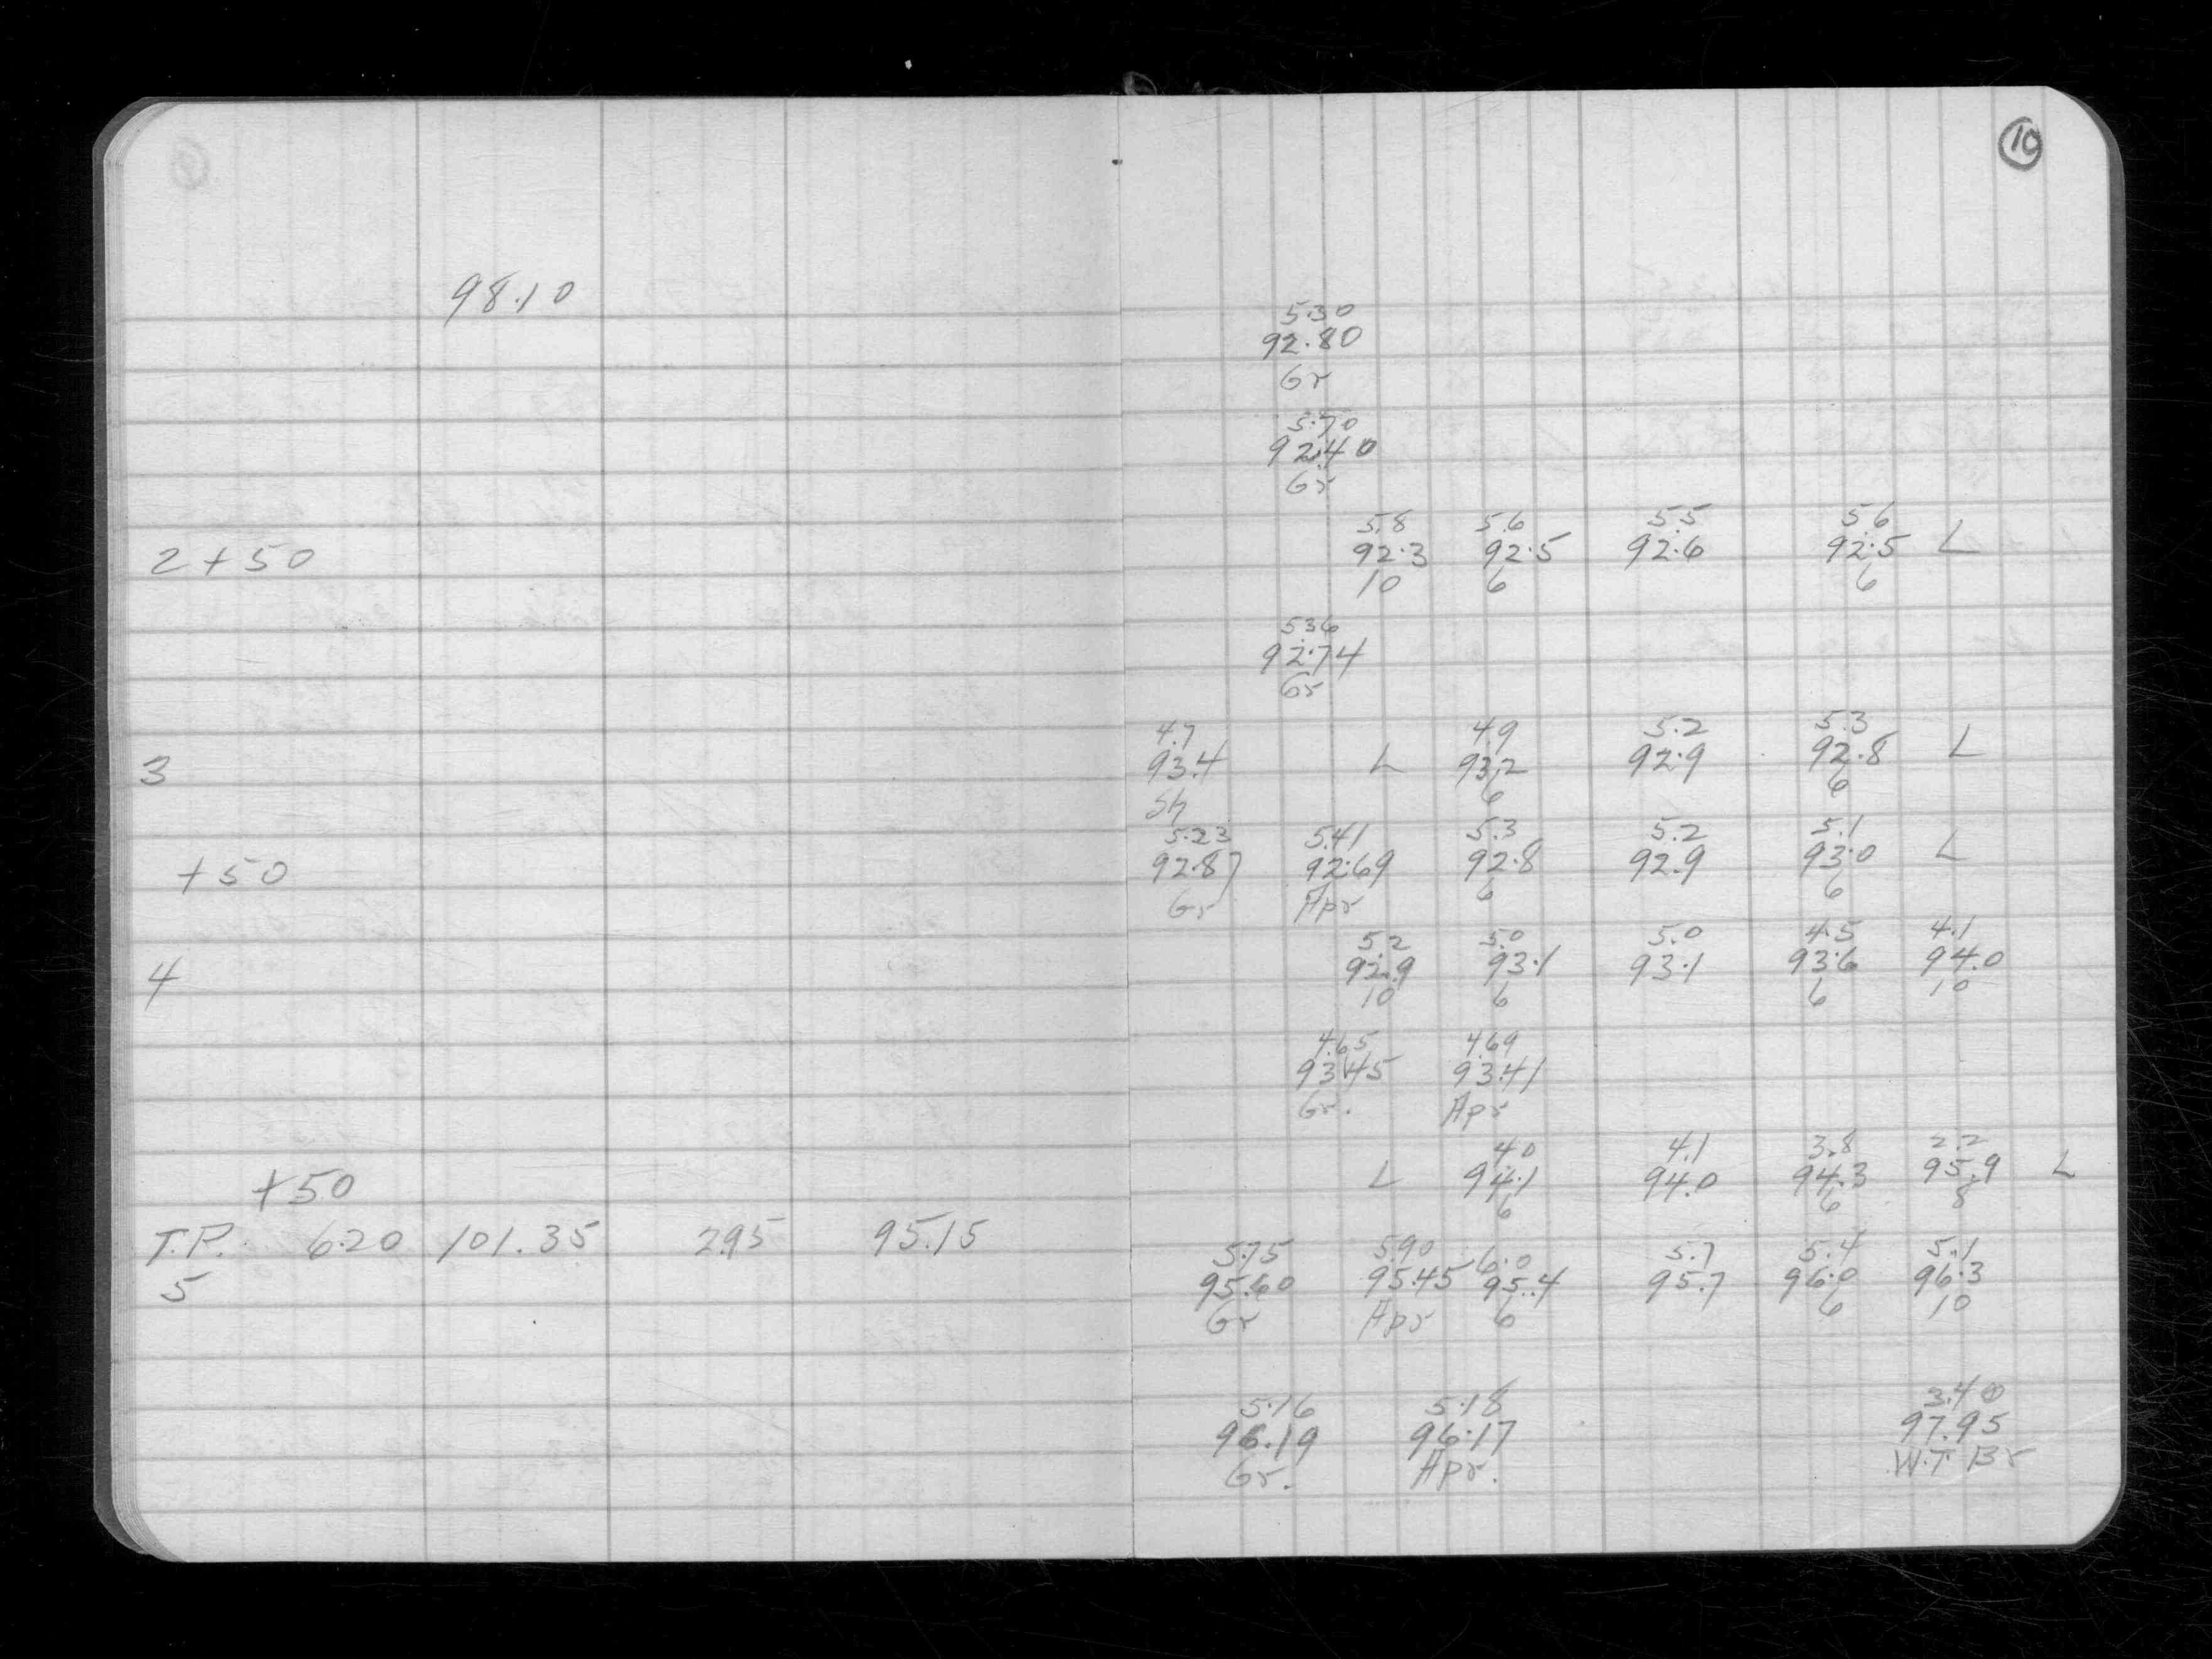 10
98.10
5.30
92.80
Gr
5.70
92.40
Gr
5.8 5.6 5.5 5.6
2+50 92.3 92.5 92.6 92.5 L
10 6 6
5.36
92.74
Gr
4.7 4.9 5.2 5.3
3 93.4 L 93.2 92.9 92.8 L
Sh 6 6
5.23 5.41 5.3 5.2 5.1
+50 92.87 92.69 92.8 92.9 93.0 L
Gr Apr 6 6
5.2 5.0 5.0 4.5 4.1
4 92.9 93.1 93.1 93.6 94.0
10 6 6 10
4.65 4.69
93.45 93.41
Gr. Apr
4.0 4.1 3.8 2.2
+50 L 94.1 94.0 94.3 95.9 L
6 6 8
T.P. 6.20 101.35 2.95 95.15
5.75 5.90 6.0 5.7 5.4 5.1
5 95.60 95.45 95.4 95.7 96.0 96.3
Gr Apr 6 6 10
5.16 5.18 3.40
96.19 96.17 97.95
Gr. Apr. W.T. Br